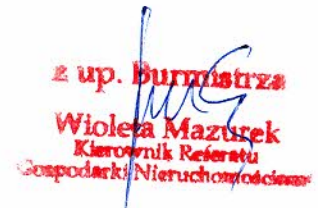 z up. Burmistrza
Wioleta Mazurek
Kierownik Referatu
Gospodarki Nieruchomościami